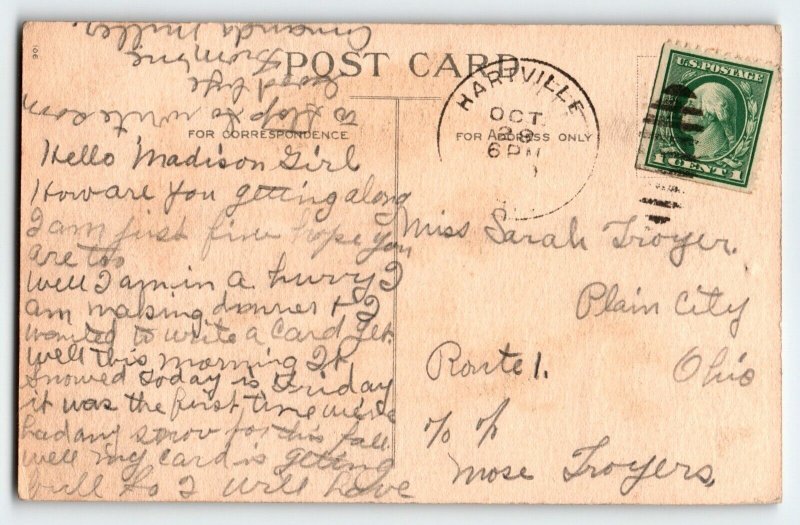 POST CARD
FOR CORRESPONDENCE
FOR ADDRESS ONLY
HARTVILLE
OCT.
29
6 PM
U.S. POSTAGE
1 CENTS 1
Hello Madison Girl
How are you getting along
I am just fine hope you
are too
well I am in a hurry I
am making dinner & I
wanted to write a card yet.
well this morning It
snowed today is Friday
it was the first time we've
had any snow for this fall
well my card is getting
full so I will have
to stop so write soon
Good bye
from me
Amanda Miller.
Miss Sarah Troyer.
Plain City
Route 1. Ohio
% of
Mose Troyers,
106